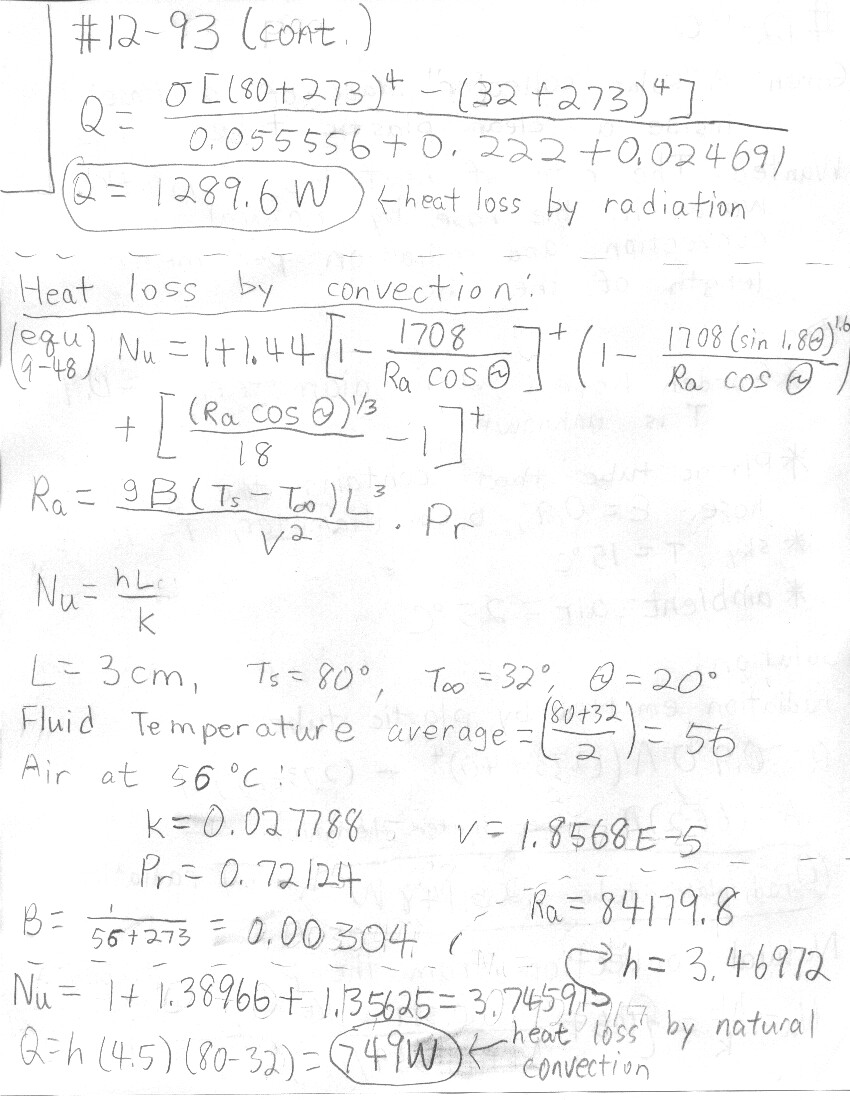 #12-93 (cont.)
Q = σ[(80+273)⁴ - (32+273)⁴] / 0.055556+0.222+0.024691
Q = 1289.6 W ← heat loss by radiation
Heat loss by convection:
(equ 9-48) Nu = 1+1.44 [1 - 1708 / Ra cos Θ]⁺ (1 - 1708 (sin 1.8Θ)^1.6 / Ra cos Θ)
+ [(Ra cos Θ)^1/3 / 18 - 1]⁺
Ra = gB(Ts - T∞)L³ / V² · Pr
Nu = hL / k
L = 3cm, Ts = 80°, T∞ = 32°, Θ = 20°
Fluid Temperature average = (80+32 / 2) = 56
Air at 56 °C:
k = 0.027788 V = 1.8568E-5
Pr = 0.72124
Ra = 84179.8
B = 1 / 56+273 = 0.00304
h = 3.46972
Nu = 1 + 1.38966 + 1.35625 = 3.745915
Q = h (4.5) (80-32) = 749W ← heat loss by natural convection